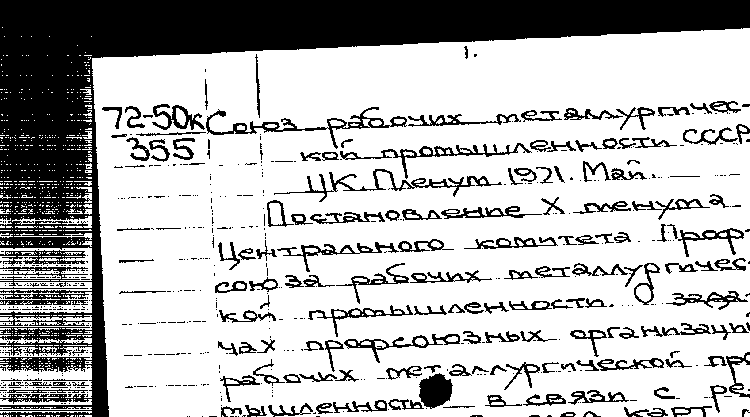 1.
72-50к Союз рабочих металлургичес-
355
кой промышленности СССР.
ЦК. Пленум. 1971. Май.
Постановление X пленума
Центрального комитета Проф-
союза рабочих металлургичес-
кой промышленности. О зада-
чах профсоюзных организаций
рабочих металлургической про-
мышленности в связи с ре-